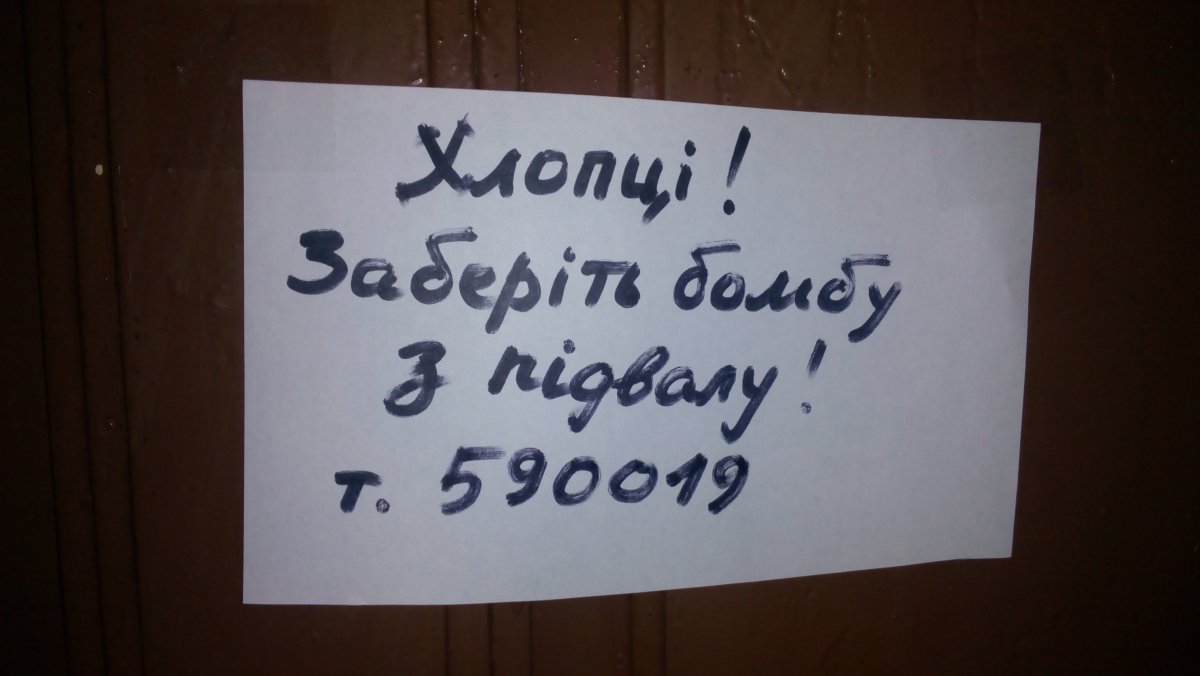 Хлопці!
Заберіть бомбу
з підвалу!
т. 590019